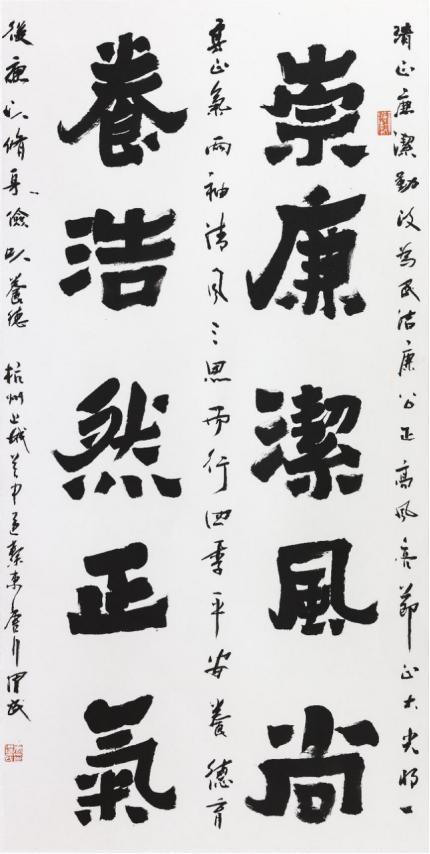 清正廉潔勤政為民洁廉公正高風亮節正大光明一
崇廉潔風尚
身正氣兩袖清風三思而行四季平安養德育
養浩然正氣
後廉以脩身儉以養德 杭州上城